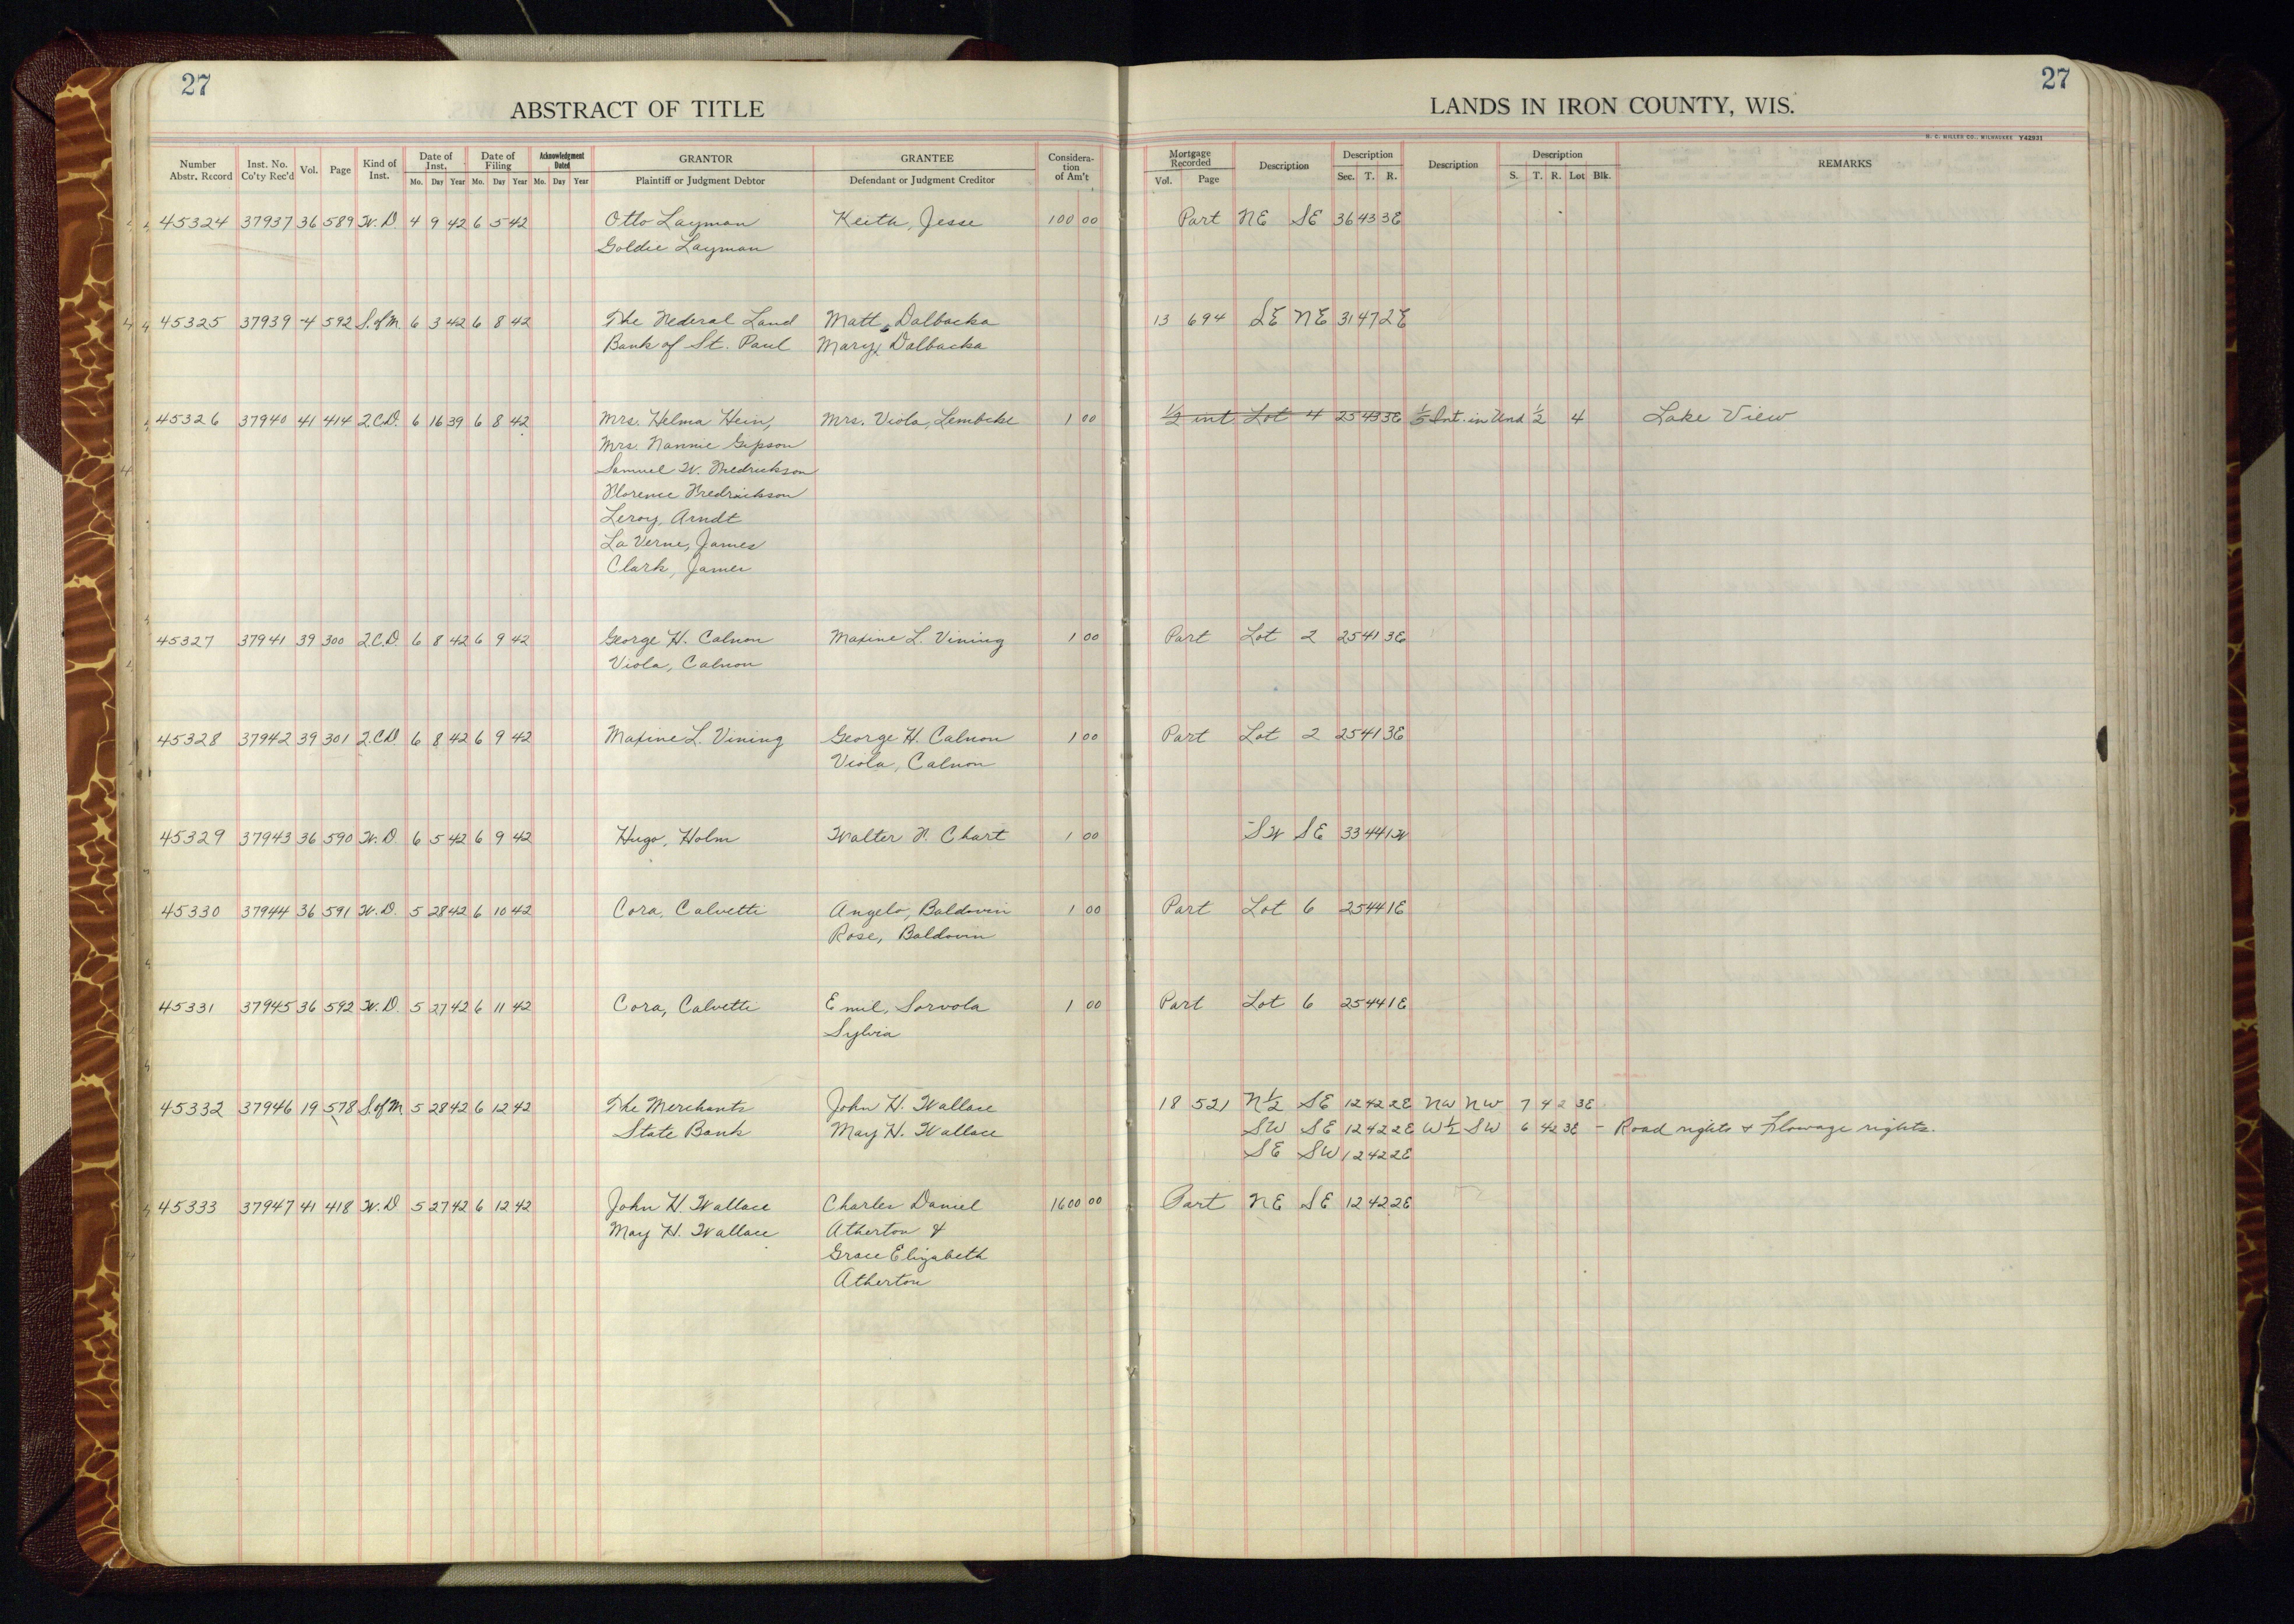 27
27
ABSTRACT OF TITLE
LANDS IN IRON COUNTY, WIS.
H. C. MILLER CO., MILWAUKEE Y42931
Number Abstr. Record Inst. No. Co'ty Rec'd Vol. Page Kind of Inst. Date of Inst. Mo. Day Year Date of Filing Mo. Day Year Acknowledgment Dated Mo. Day Year GRANTOR Plaintiff or Judgment Debtor GRANTEE Defendant or Judgment Creditor Considera-tion of Am't Mortgage Recorded Vol. Page Description Description Sec. T. R. Description Description S. T. R. Lot Blk. REMARKS
45324 37937 36 589 W.D. 4 9 42 6 5 42 Otto Layman Keith, Jesse 100 00 Part NE SE 36 43 3E
Goldie Layman
45325 37939 4 592 S.of M. 6 3 42 6 8 42 The Federal Land Matt, Dalbacka 13 694 SE NE 31 47 2E
Bank of St. Paul Mary, Dalbacka
45326 37940 41 414 2.C.D. 6 16 39 6 8 42 Mrs. Helma Hein, Mrs. Viola, Lembcke 1 00 1/2 int. Lot 4 25 43 3E 1/5 Int. in Und 1/2 4 Lake View
Mrs. Nannie Gipson
Samuel W. Fredrickson
Florence Fredrickson
Leroy, Arndt
La Verne, James
Clark, James
45327 37941 39 300 2.C.D. 6 8 42 6 9 42 George H. Calnon Maxine L. Vining 1 00 Part Lot 2 25 41 3E
Viola, Calnon
45328 37942 39 301 2.C.D. 6 8 42 6 9 42 Maxine L. Vining George H. Calnon 1 00 Part Lot 2 25 41 3E
Viola, Calnon
45329 37943 36 590 W.D. 6 5 42 6 9 42 Hugo, Holm Walter F. Chart 1 00 SW SE 33 44 1W
45330 37944 36 591 W.D. 5 28 42 6 10 42 Cora, Calvetti Angelo, Baldovin 1 00 Part Lot 6 25 44 1E
Rose, Baldovin
45331 37945 36 592 W.D. 5 27 42 6 11 42 Cora, Calvetti Emil, Sorvola 1 00 Part Lot 6 25 44 1E
Sylvia
45332 37946 19 578 S.of M 5 28 42 6 12 42 The Merchants John H. Wallace 18 521 N1/2 SE 12 42 2E NW NW 7 42 3E
State Bank May H. Wallace SW SE 12 42 2E W1/2 SW 6 42 3E - Road rights & Flowage rights.
SE SW 12 42 2E
45333 37947 41 418 W.D 5 27 42 6 12 42 John H. Wallace Charles Daniel 1600 00 Part NE SE 12 42 2E
May H. Wallace Atherton &
Grace Elizabeth
Atherton